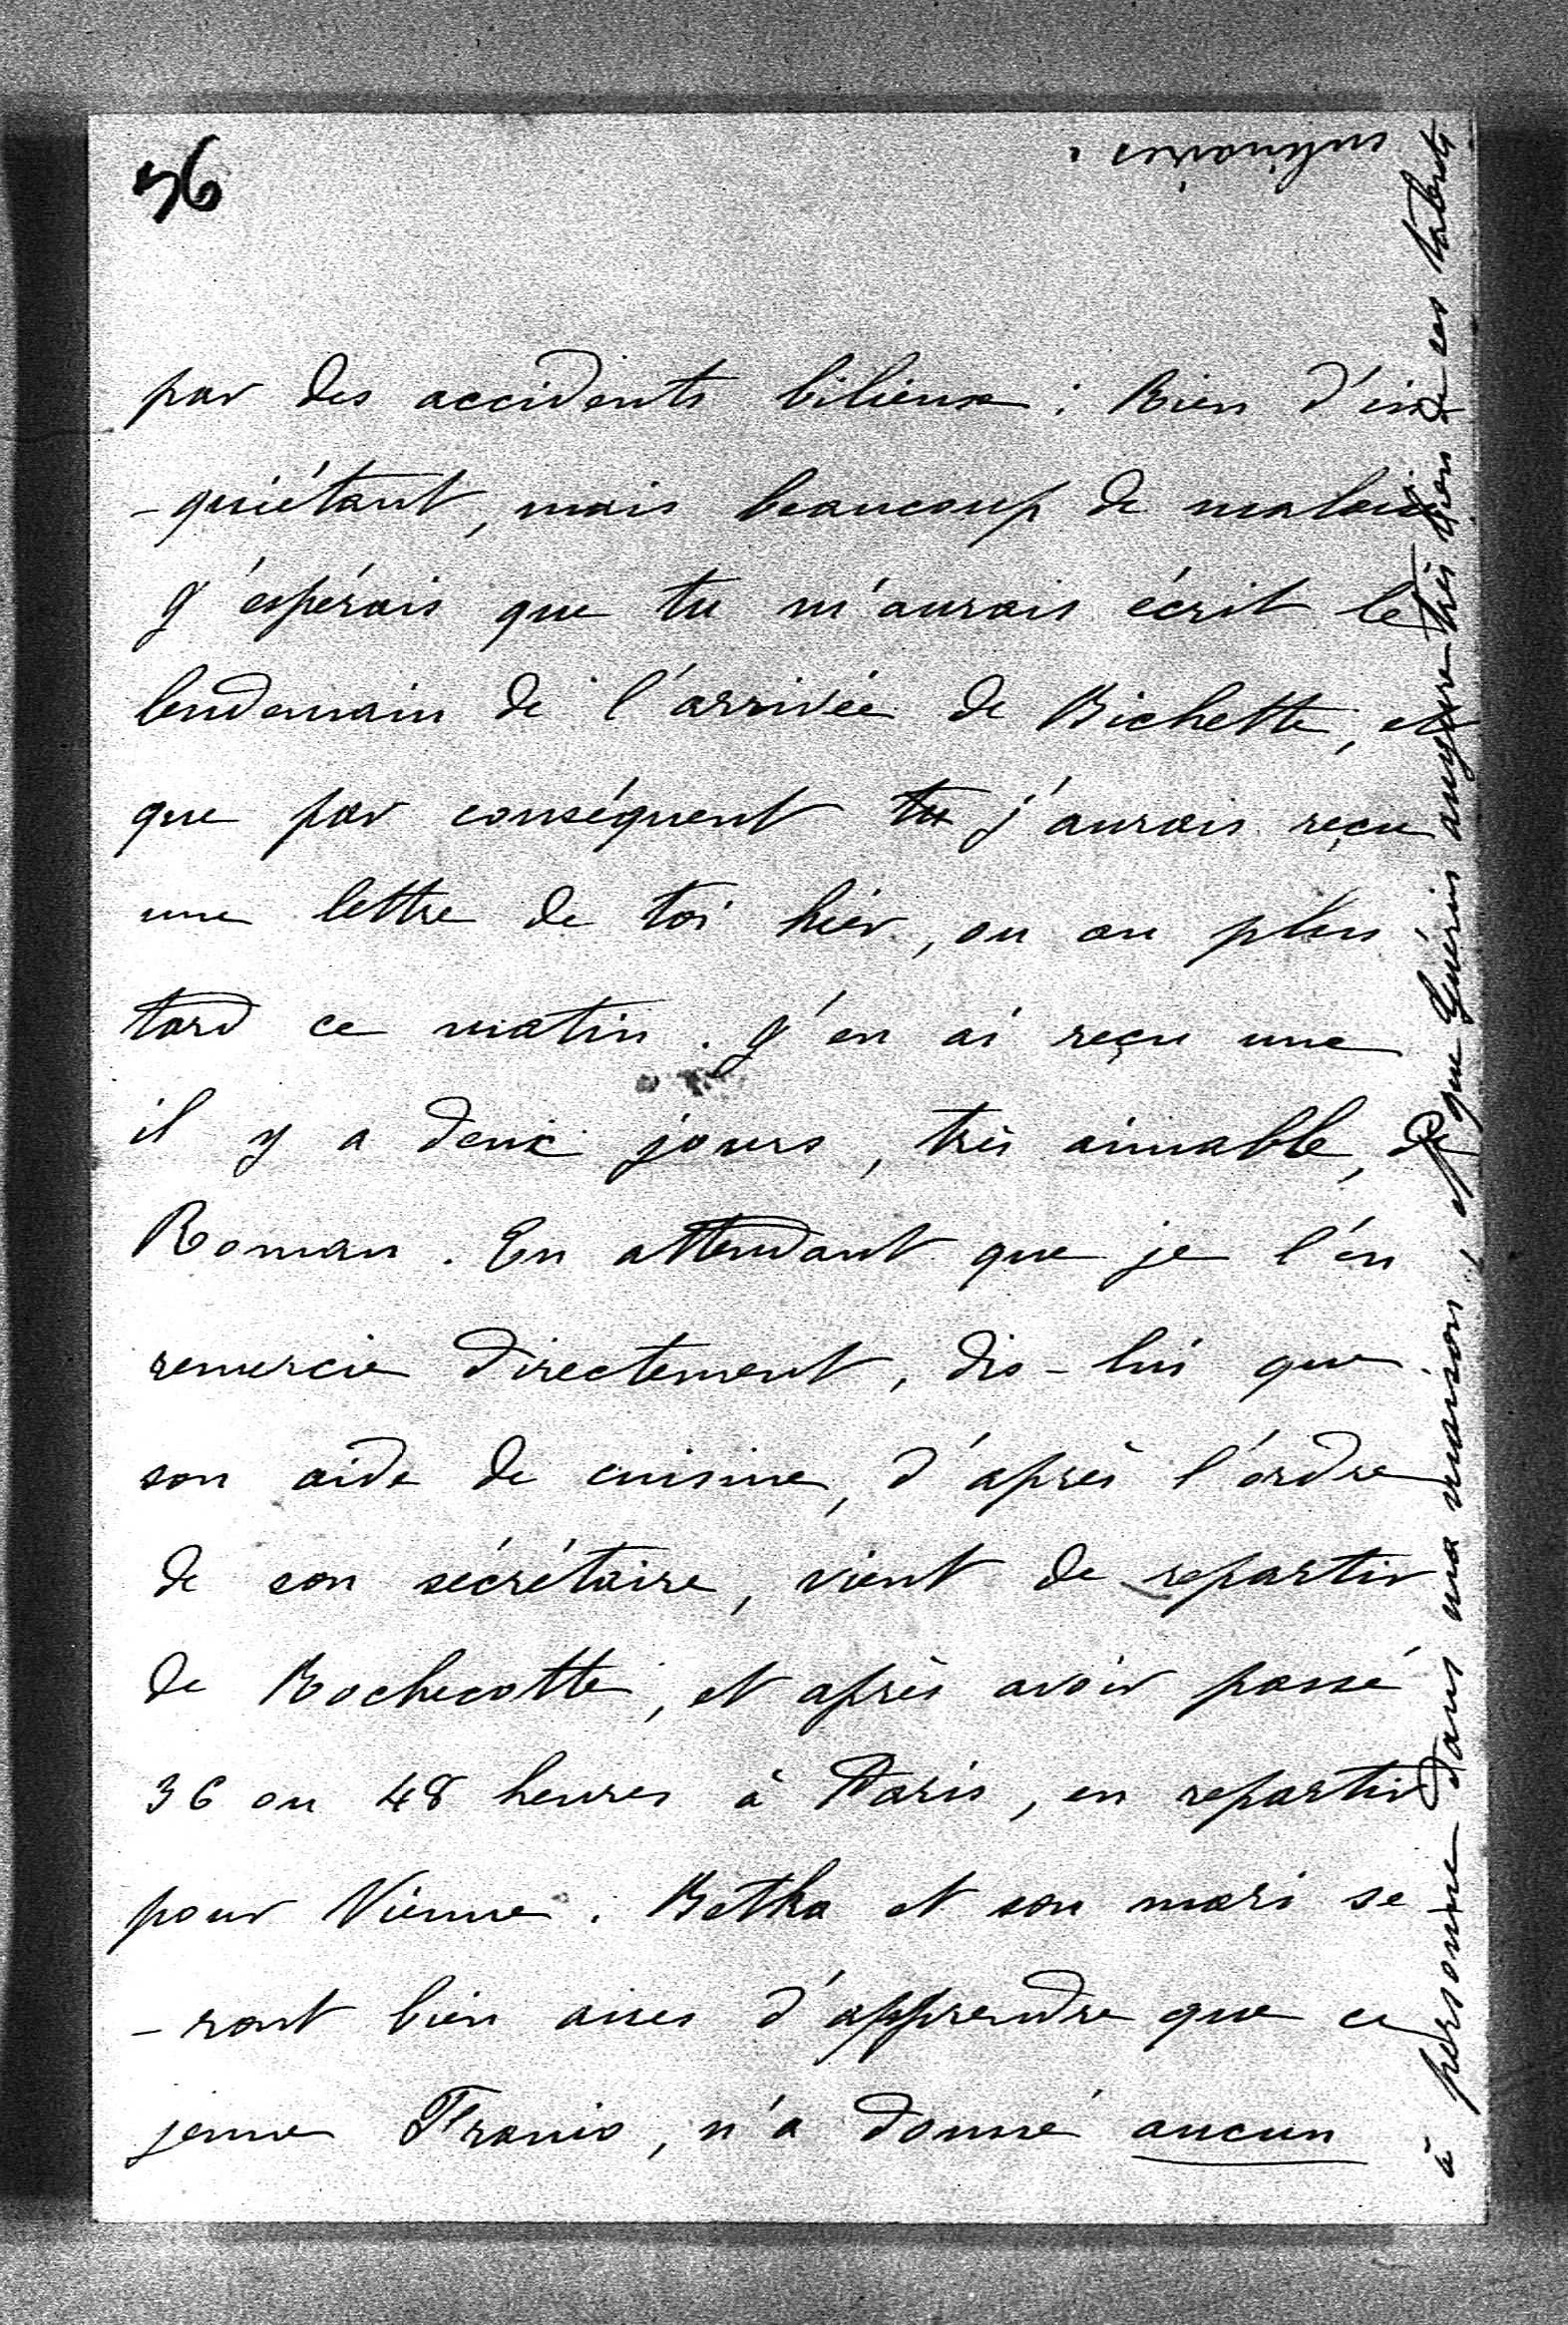 36
par des accidents bilieux ; Rien d'in
-quiétant, mais beaucoup de malaise.
J'espérais que tu m'aurais écrit le
lendemain de l'arrivée de Bichette, et
que par conséquent tu j'aurais reçu
une lettre de toi hier, ou au plus
tard ce matin. J'en ai reçu une
il y a deux jours, très aimable, de
Roman. En attendant que je l'en
remercie directement, dis-lui que
son aide de cuisine, d'après l'ordre
de son sécrétaire, vient de repartir
de Rochecotte, et après avoir passé
36 ou 48 heures à Paris, en repartir
pour Vienne. Betka et son mari se
-ront bien aises d'apprendre que ce
jeune Franio, n'a donné aucun
à personne dans ma maison, et que Guérin augure très bien de ses talents
culinaires.